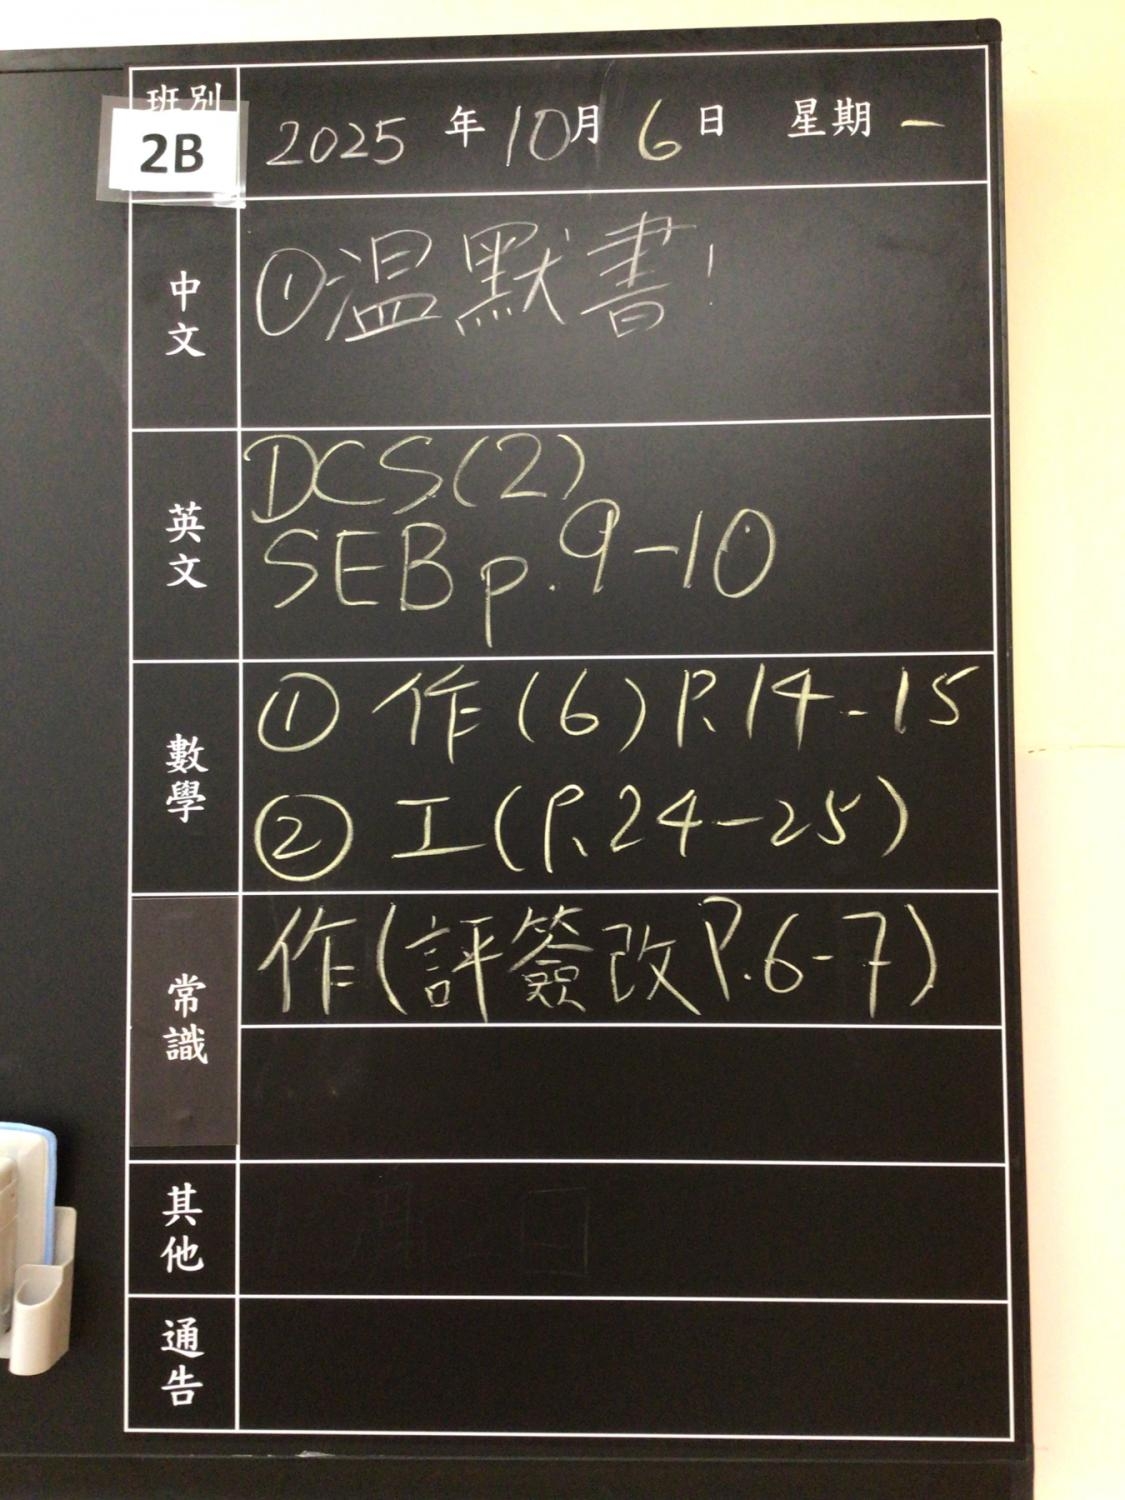 班別
2B
2025年10月6日 星期一
中文
①溫默書!
英文
DCS(2)
SEB p.9-10
數學
① 作(6)P.14-15
② 工(P.24-25)
常識
作(評簽改P.6-7)
其他
通告